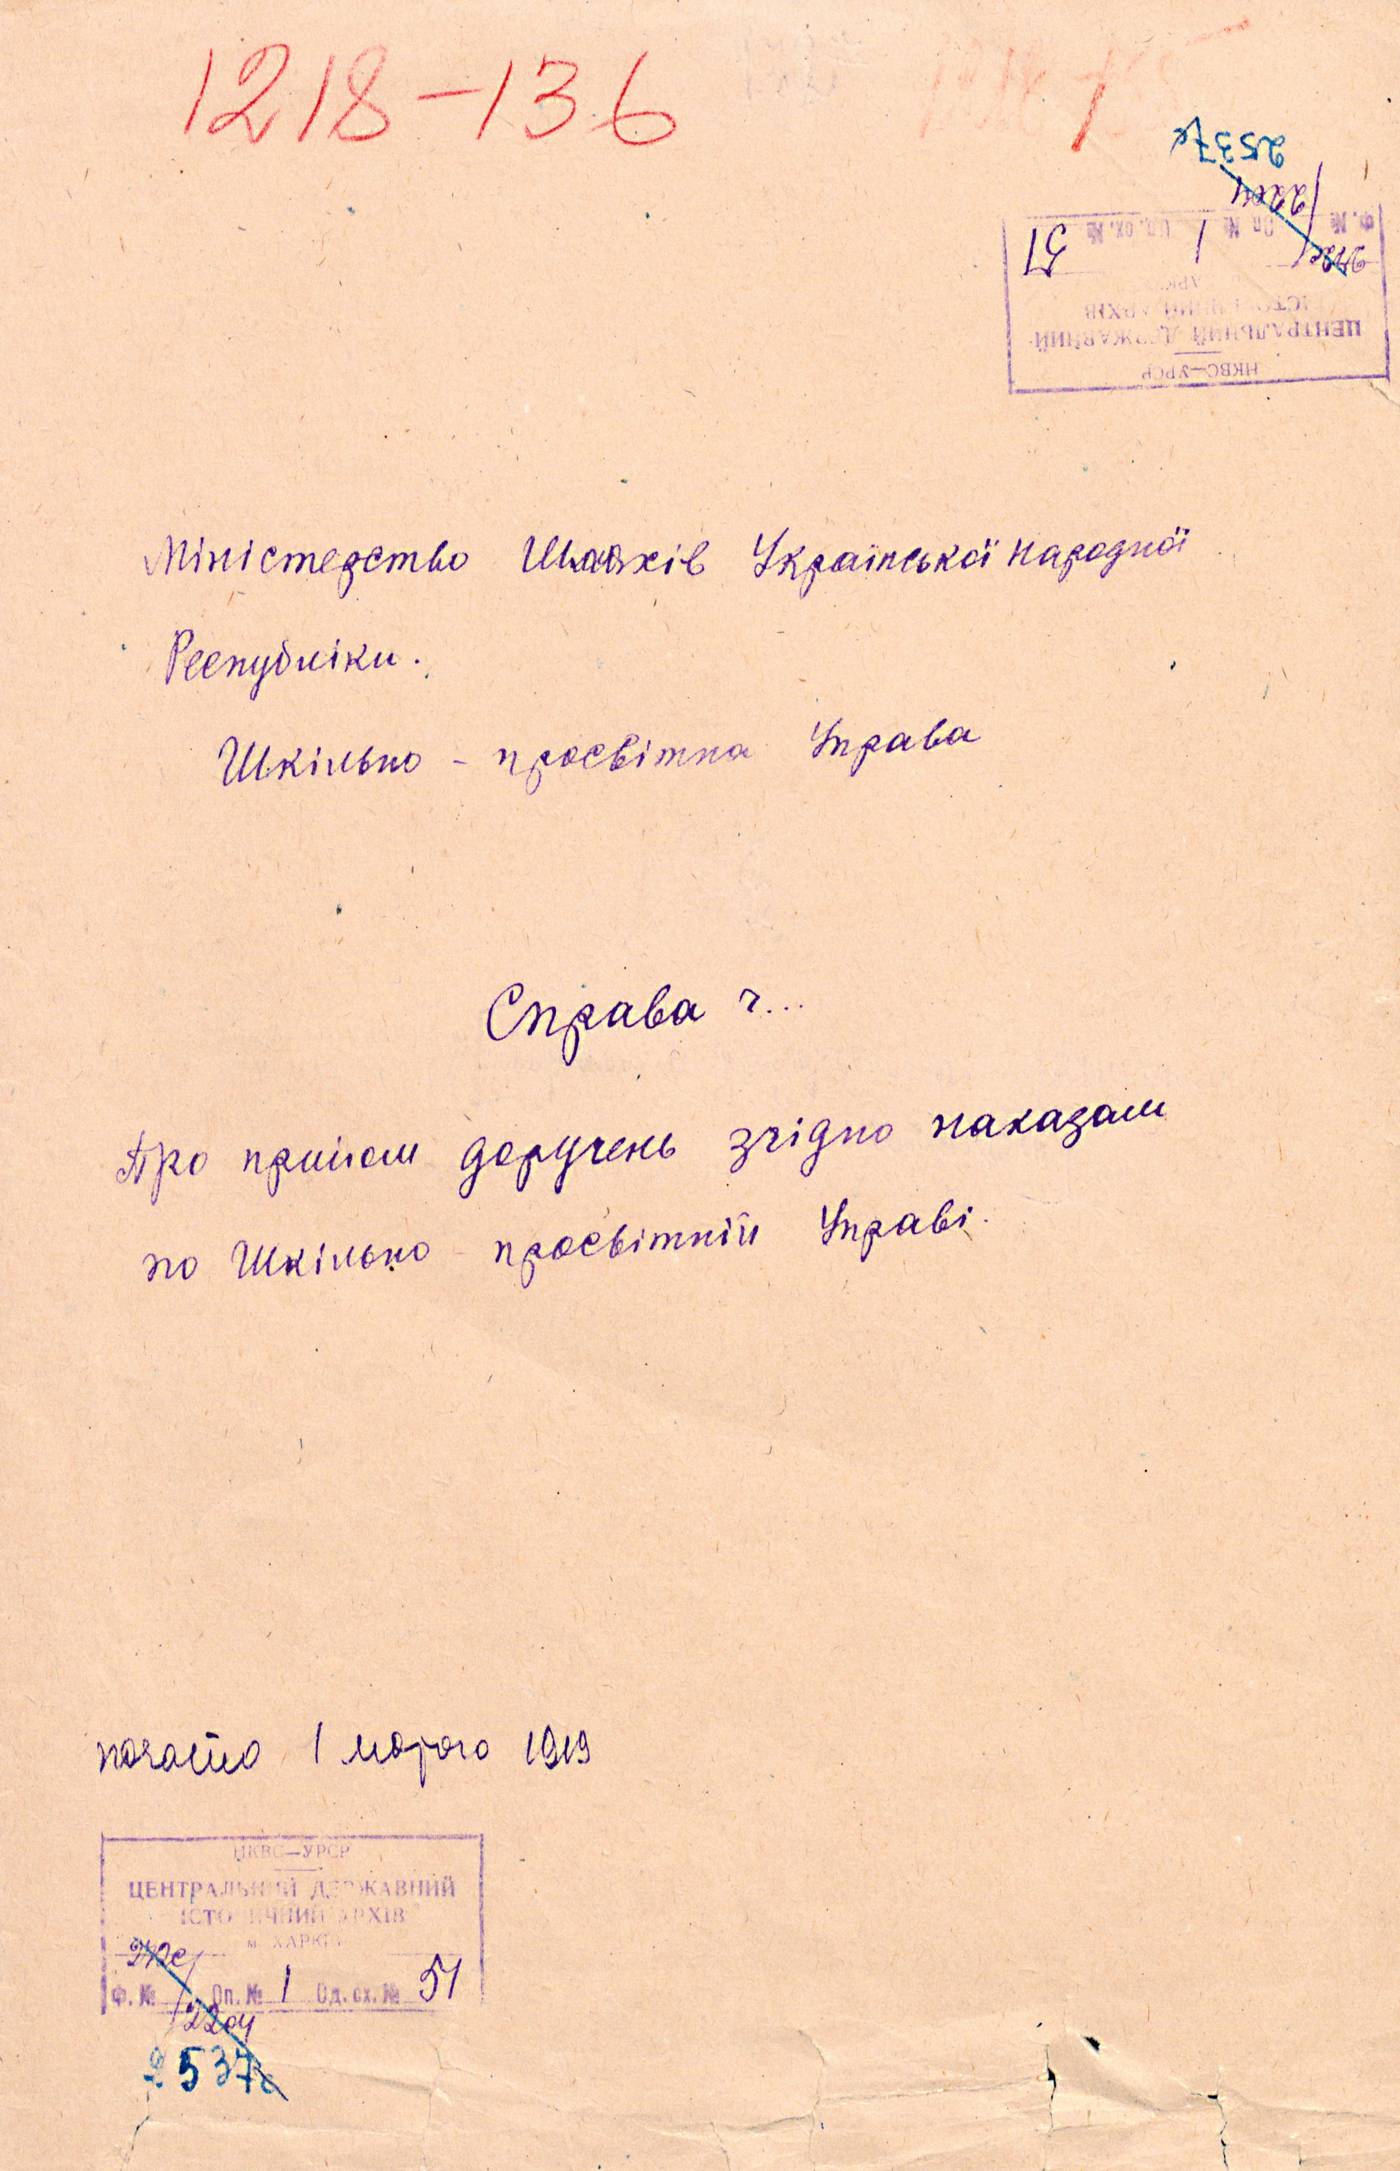 1218-136
2537с
Ф. № Оп № 1 Од. сх. № 51
ЦЕНТРАЛЬНИЙ ДЕРЖАВНИЙ
ІСТОРИЧНИЙ АРХІВ
НКВС—УРСР
Міністерство Шляхів Української народної
Республіки.
Шкільно - просвітна Управа
Справа ч...
Про прийом доручень згідно наказам
по Шкільно - просвітній Управі.
почато 1 лютого 1919
НКВС—УРСР
ЦЕНТРАЛЬНИЙ ДЕРЖАВНИЙ
ІСТОРИЧНИЙ АРХІВ
м. ХАРКІВ
Ф. № Оп. № 1 Од. сх. № 51
2537с